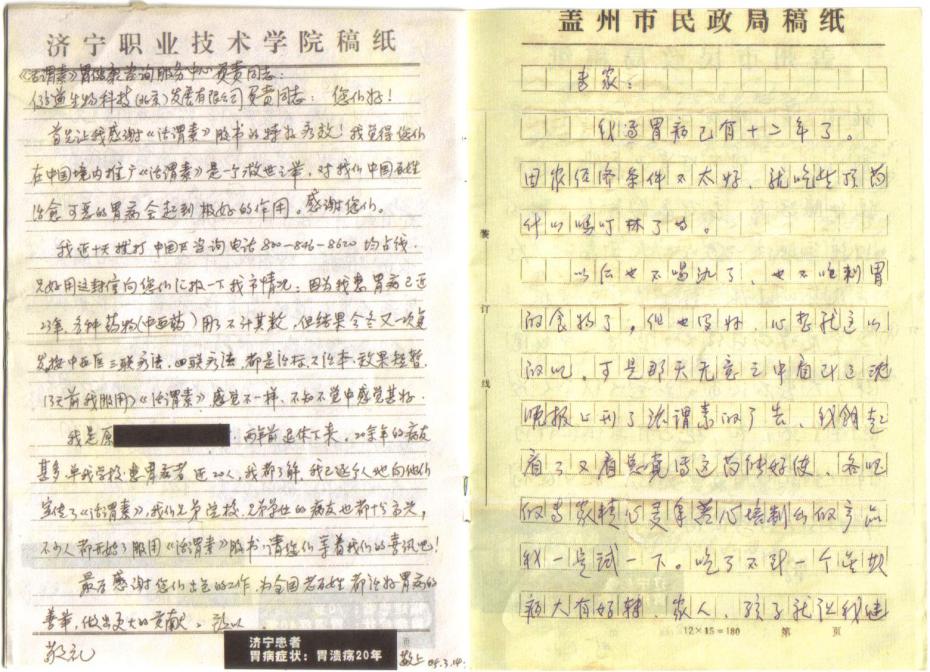 济宁职业技术学院稿纸
《活谓素》胃健康咨询服务中心负责同志：
生物科技(北京)发展有限公司负责同志： 您们好！
首先让我感谢《活谓素》胶书的特效疗效！我觉得您们
在中国境内推广《活谓素》是一个救世之举，对我们中国百姓
治愈可恶的胃病会起到极好的作用。感谢您们。
我近十天拨打中国区咨询电话800-846-8620均占线，
只好用这封信向您们汇报一下我市情况：因为我患胃病已近
23年，各种药物(中西药)用了不计其数，但结果今冬又一次复
发，按中西医三联疗法、四联疗法，都是治标不治本，效果短暂。
13天前我服用了《活谓素》感觉不一样，不知不觉中感觉甚好。
我是原 两年前退休下来，20余年的病友
甚多，单我学校患胃病者近20人，我都了解，我已逐个地向他们
宣传了《活谓素》，我们兄弟学校、兄弟单位的病友也都十分高兴，
不少人都开始了服用《活谓素》胶书，请您们等着我们的喜讯吧！
最后感谢您们出色的工作，为全国老百姓都治好胃病的
善举，做出更大的贡献。 此致
敬礼
济宁患者
胃病症状：胃溃疡20年
敬上 05.3.14.
盖州市民政局稿纸
专家：
我得胃病已有十二年了。
因家经济条件不太好，就吃些
什么吗叮林了吗。
以后也不喝酒了，也不吃刺胃
的食物了，但也没好，心想就这么
的吧，可是那天无意之中看到了沈
晚报上刊了活谓素的广告，我翻起
看了又看总觉得这药能好使，各吧
的专家精心培制出的产品
我一定试一下。吃了不到一个星期
病大有好转，家人、孩子就让我继
装
订
线
12×15=180 第 页